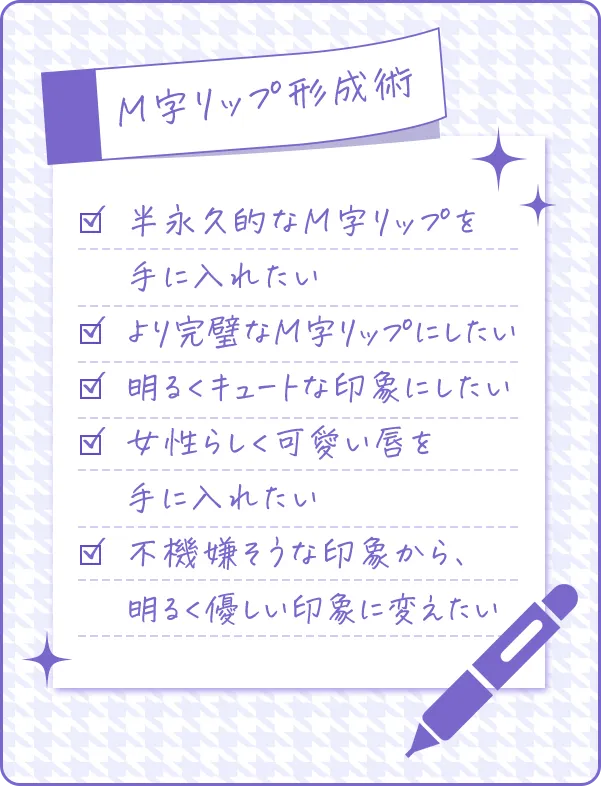 M字リップ形成術
半永久的なM字リップを
手に入れたい
より完璧なM字リップにしたい
明るくキュートな印象にしたい
女性らしく可愛い唇を
手に入れたい
不機嫌そうな印象から、
明るく優しい印象に変えたい